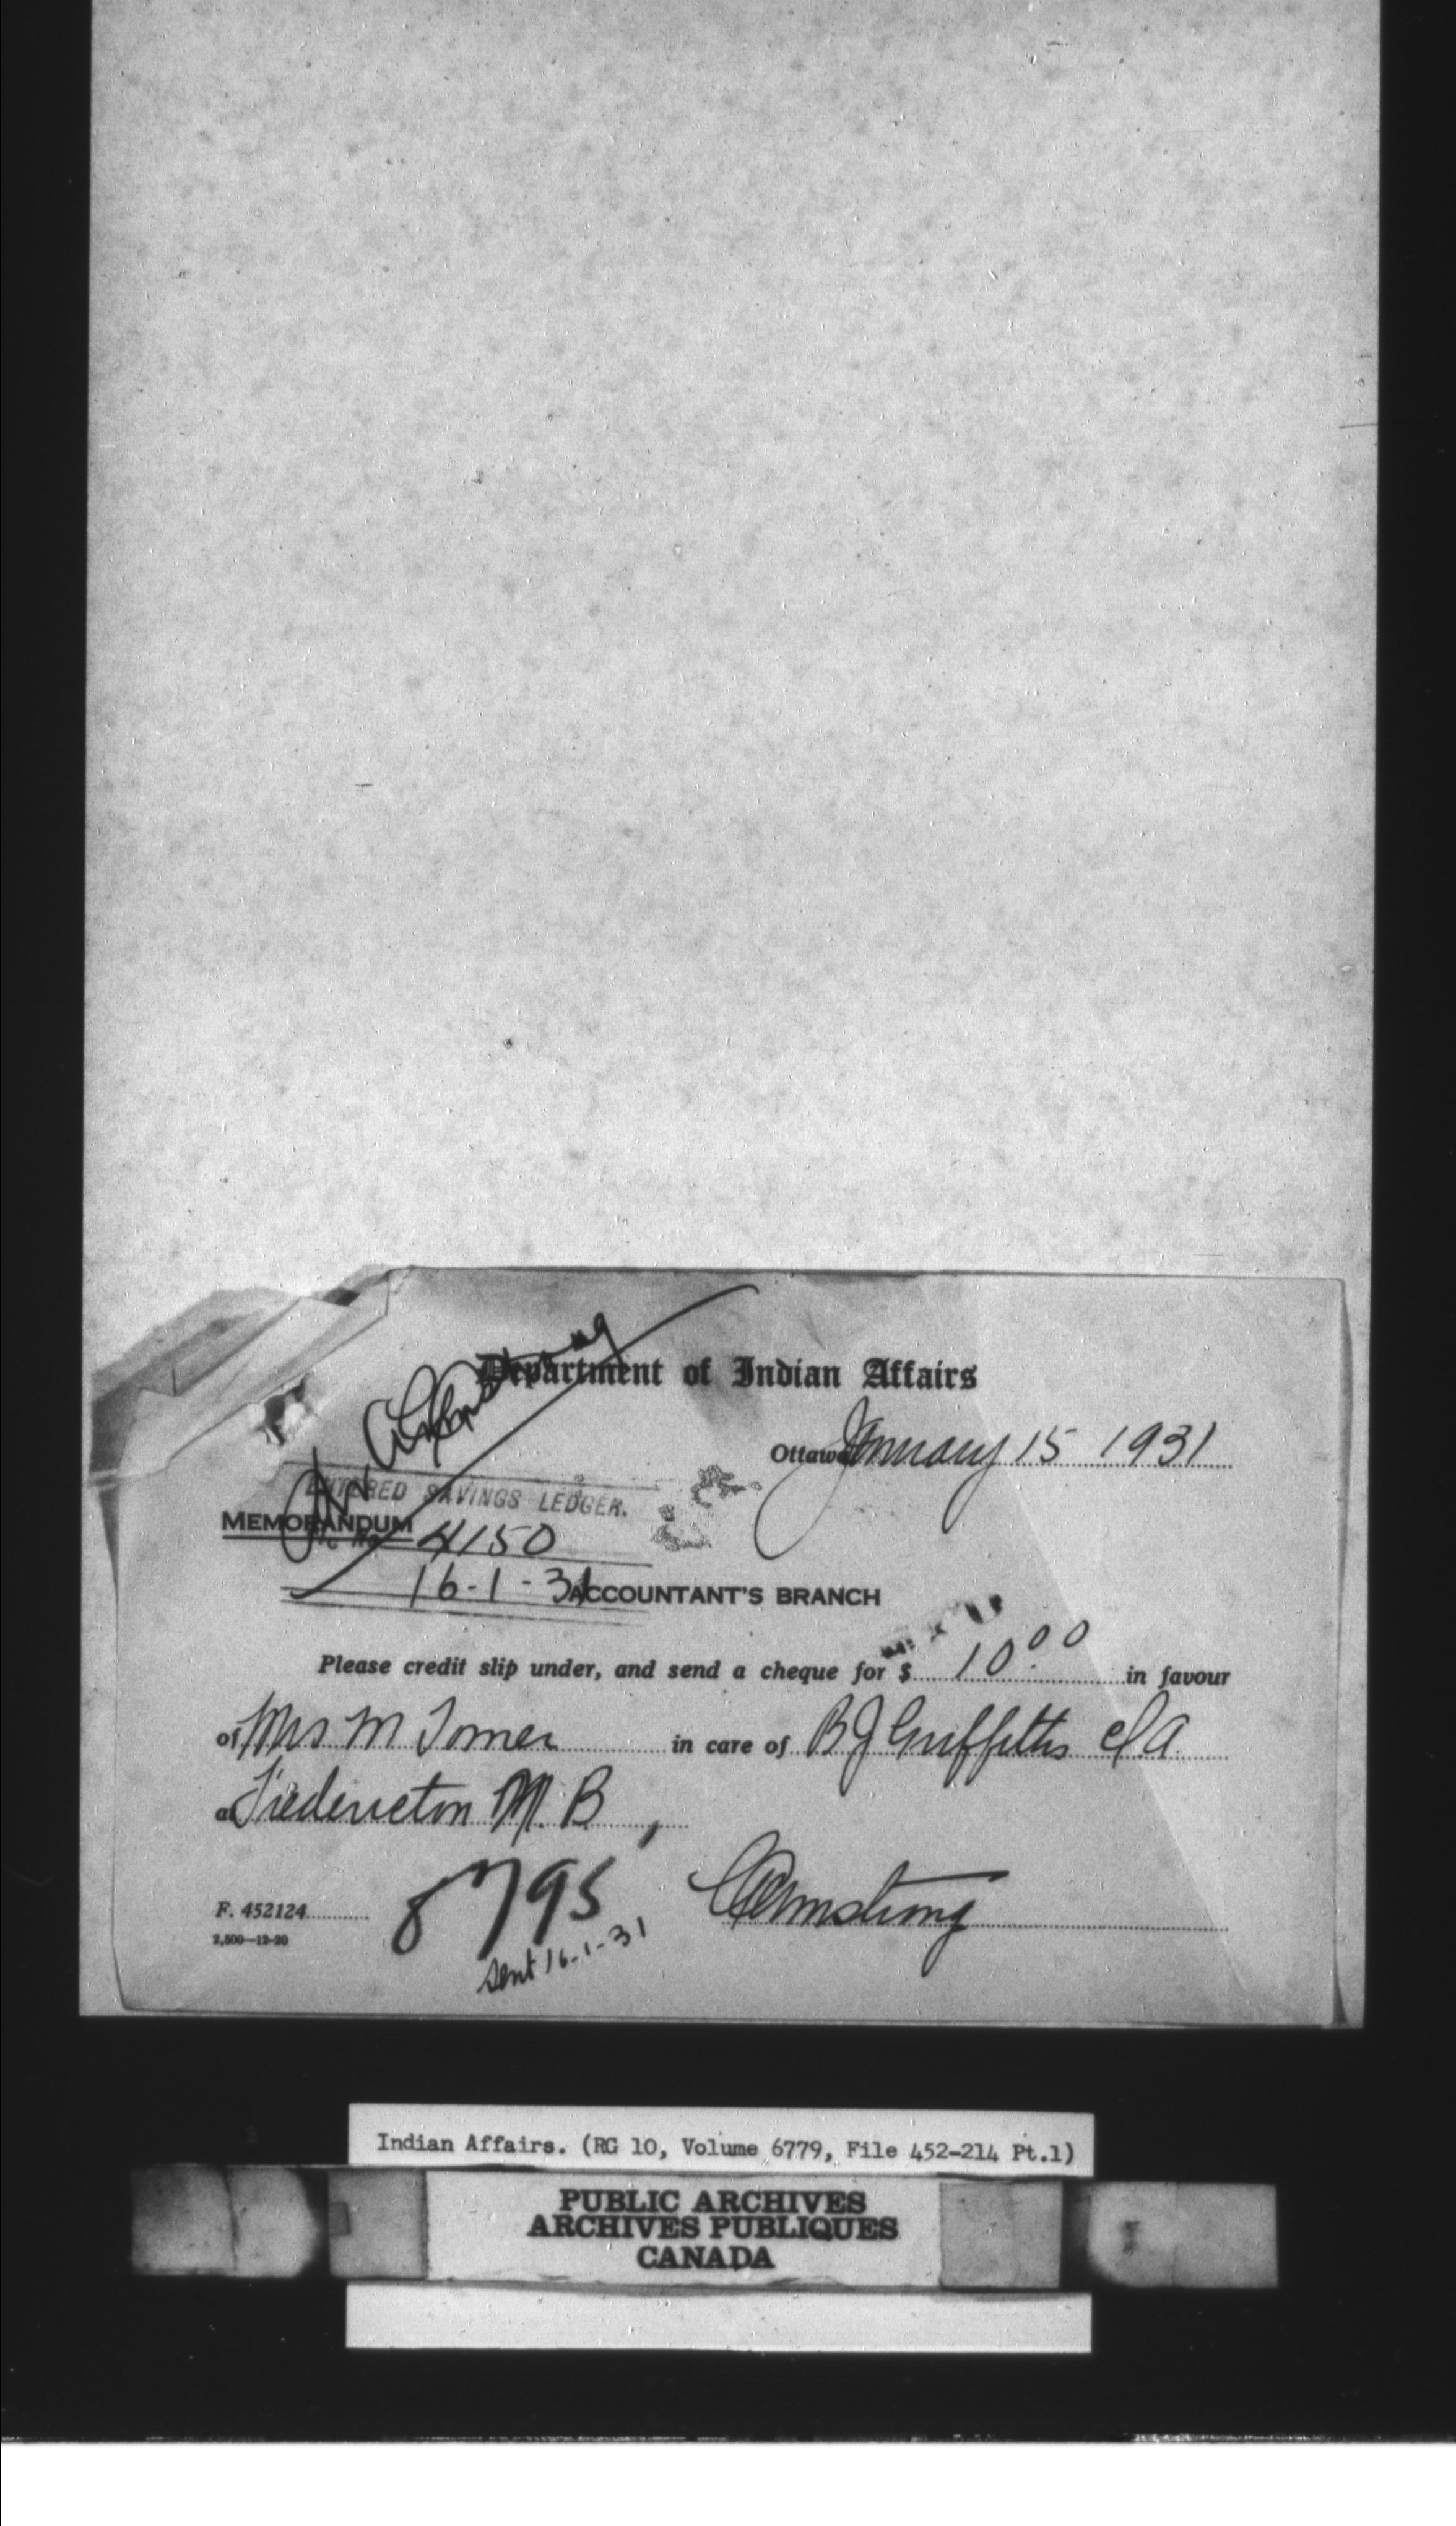 Department of Indian Affairs
Ottawa January 15 1931
ENTERED SAVINGS LEDGER.
MEMORANDUM
4150
16-1-31
ACCOUNTANT'S BRANCH
Please credit slip under, and send a cheque for $ 10.00 in favour
of Mrs M Tomer in care of B J Griffiths
at Fredericton N. B,
F. 452124
8795
Armstrong
2,500—12-20
Sent 16-1-31
Indian Affairs. (RG 10, Volume 6779, File 452-214 Pt.1)
PUBLIC ARCHIVES
ARCHIVES PUBLIQUES
CANADA